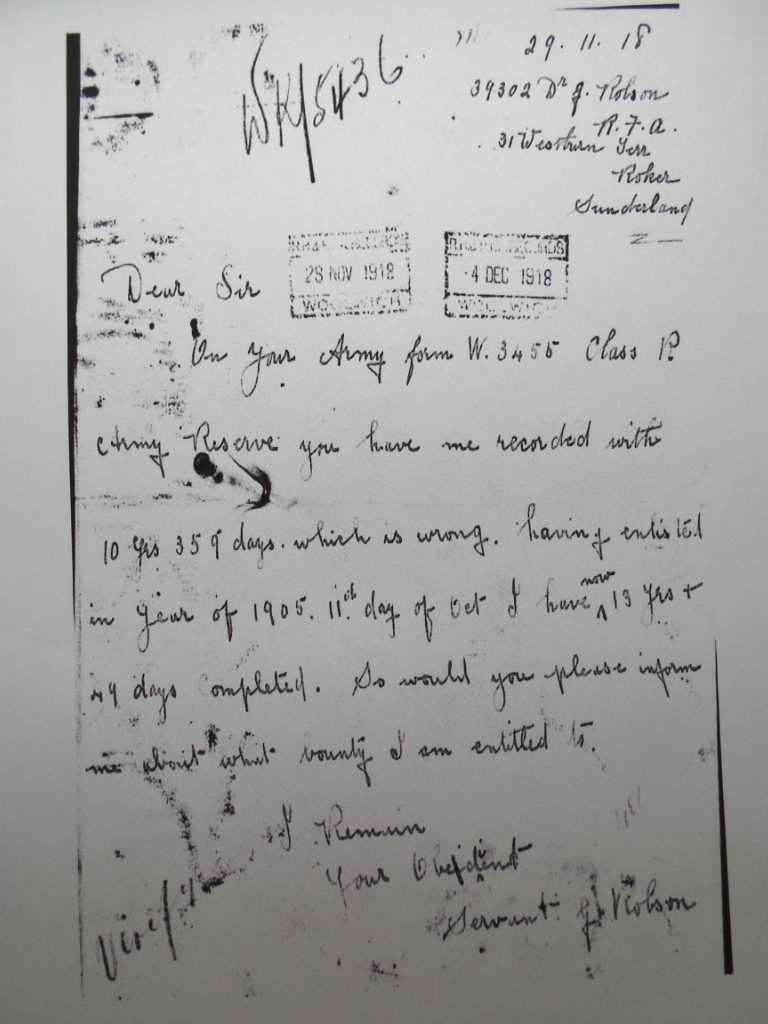 WK/5436
29.11.18
39302 Dr J. Robson
R.F.A.
31 Western Terr
Roker
Sunderland
28 NOV 1918
WOOLWICH
RECORDS
4 DEC 1918
WOOLWICH
Dear Sir
On your Army form W. 3455 Class P.
Army Reserve you have me recorded with
10 Yrs 359 days. which is wrong. having enlisted
in year of 1905. 11th day of Oct I have now 13 Yrs +
49 days completed. So would you please inform
me about what bounty I am entitled to.
I Remain
Your Obedient
Servant J Robson